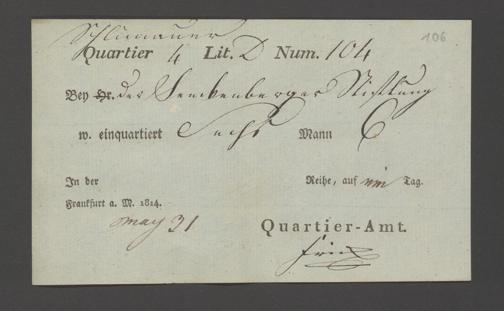 106
Quartier 4 Lit. D Num. 104
Bey Hr. der Senckenberger Stiftung
w. einquartiert Sechs Mann 6
In der Reihe, auf ein Tag.
Frankfurt a. M. 1814.
may 31
Quartier-Amt.